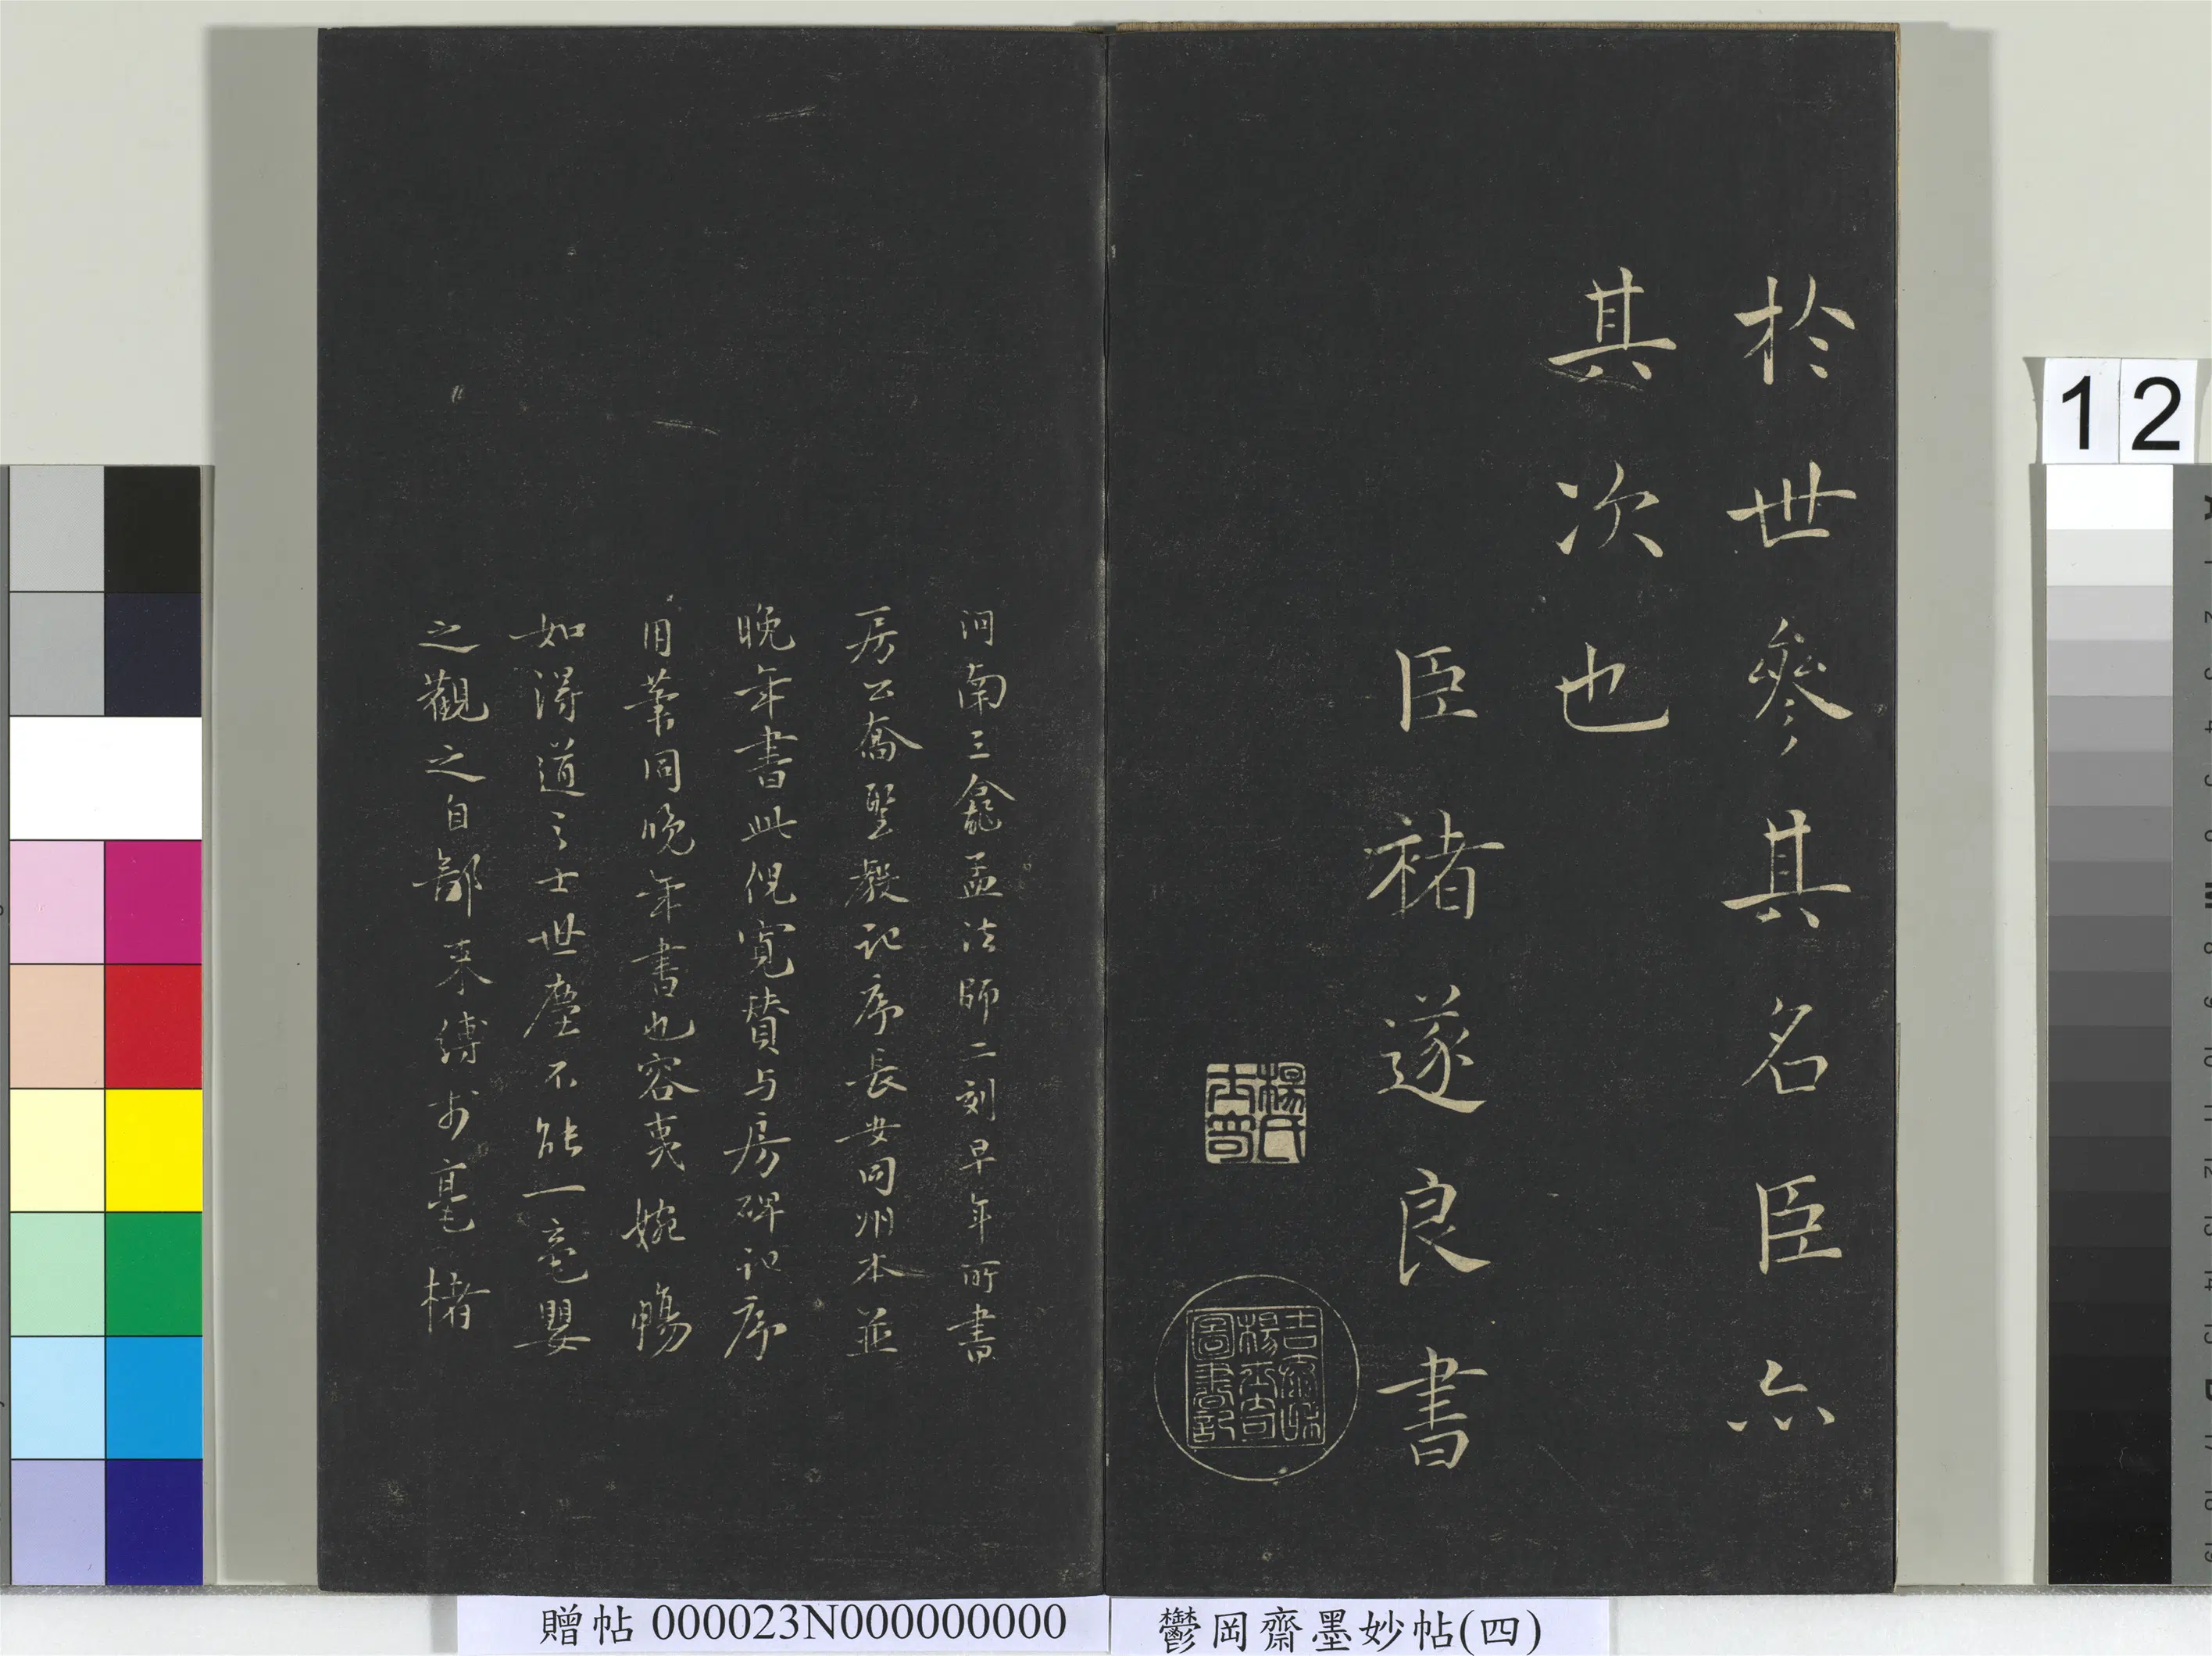 於世參其名臣亦
其次也
臣褚遂良書
楊氏
吉
楊
圖書記
河南三龕孟法師二刻早年所書
房公喬聖教記序長安同州本並
晚年書此倪寬贊与房碑記序
用筆同晚年書也容夷婉暢
如得道之士世塵不能一毫嬰
之觀之自鄙束縛於毫楮
12
贈帖 000023N000000000
鬱岡齋墨妙帖(四)